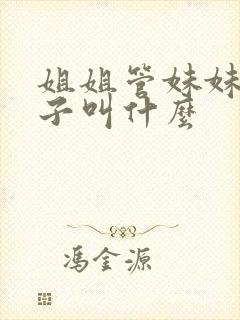 姐姐管妹妹
子叫什麼
馮金源